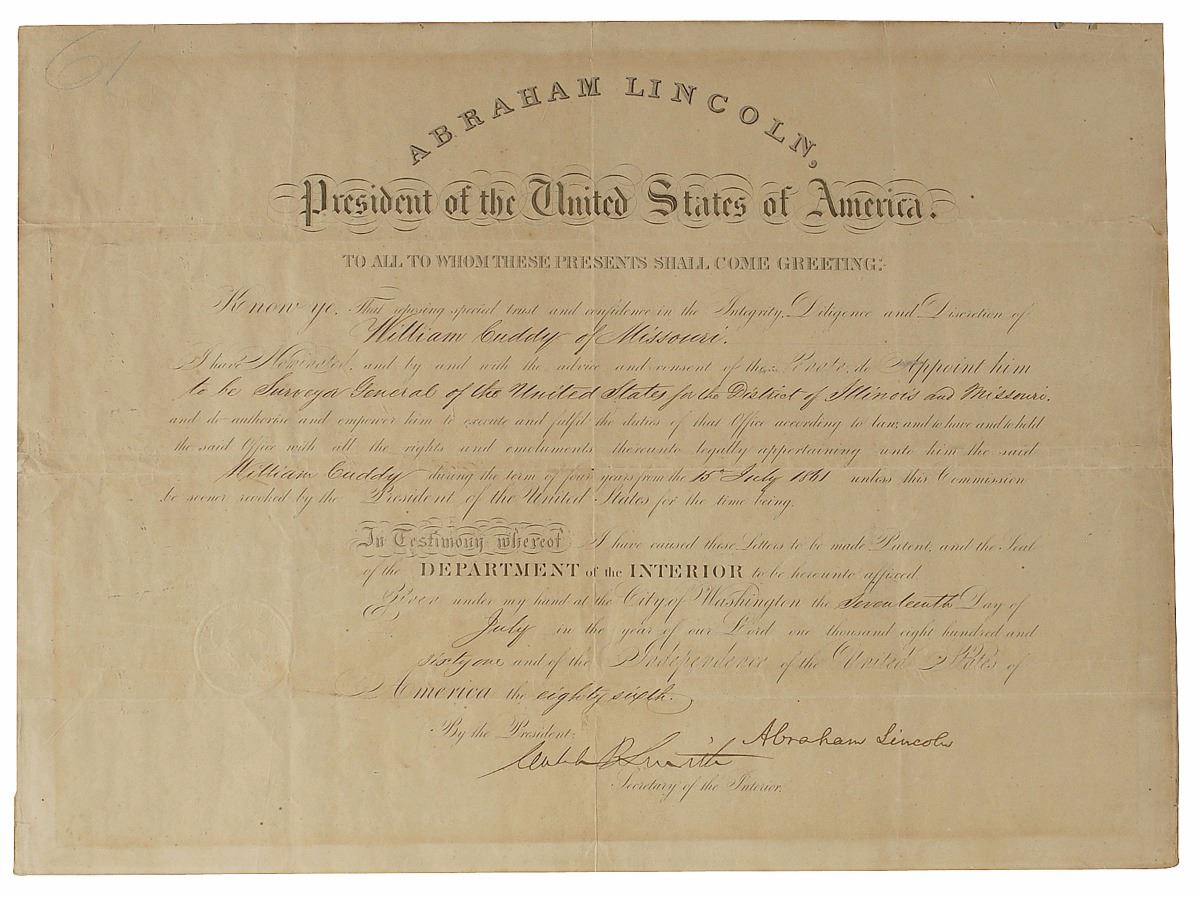 61
ABRAHAM LINCOLN,
President of the United States of America.
TO ALL TO WHOM THESE PRESENTS SHALL COME GREETING:
Know ye, That reposing special trust and confidence in the Integrity, Diligence and Discretion of
William Cuddy of Missouri.
I have Nominated, and by and with the advice and consent of the Senate, do Appoint him
to be Surveyor General of the United States for the District of Illinois and Missouri,
and do authorise and empower him to execute and fulfil the duties of that Office according to law; and to have and to hold
the said Office with all the rights and emoluments thereunto legally appertaining unto him the said
William Cuddy during the term of four years from the 15th July 1861 unless this Commission
be sooner revoked by the President of the United States for the time being.
In Testimony whereof I have caused these Letters to be made Patent, and the Seal
of the DEPARTMENT of the INTERIOR to be hereunto affixed.
Given under my hand at the City of Washington the Seventeenth Day of
July in the year of our Lord one thousand eight hundred and
sixty one and of the Independence of the United States of
America the eighty sixth.
By the President:
Abraham Lincoln
Caleb B Smith
Secretary of the Interior.